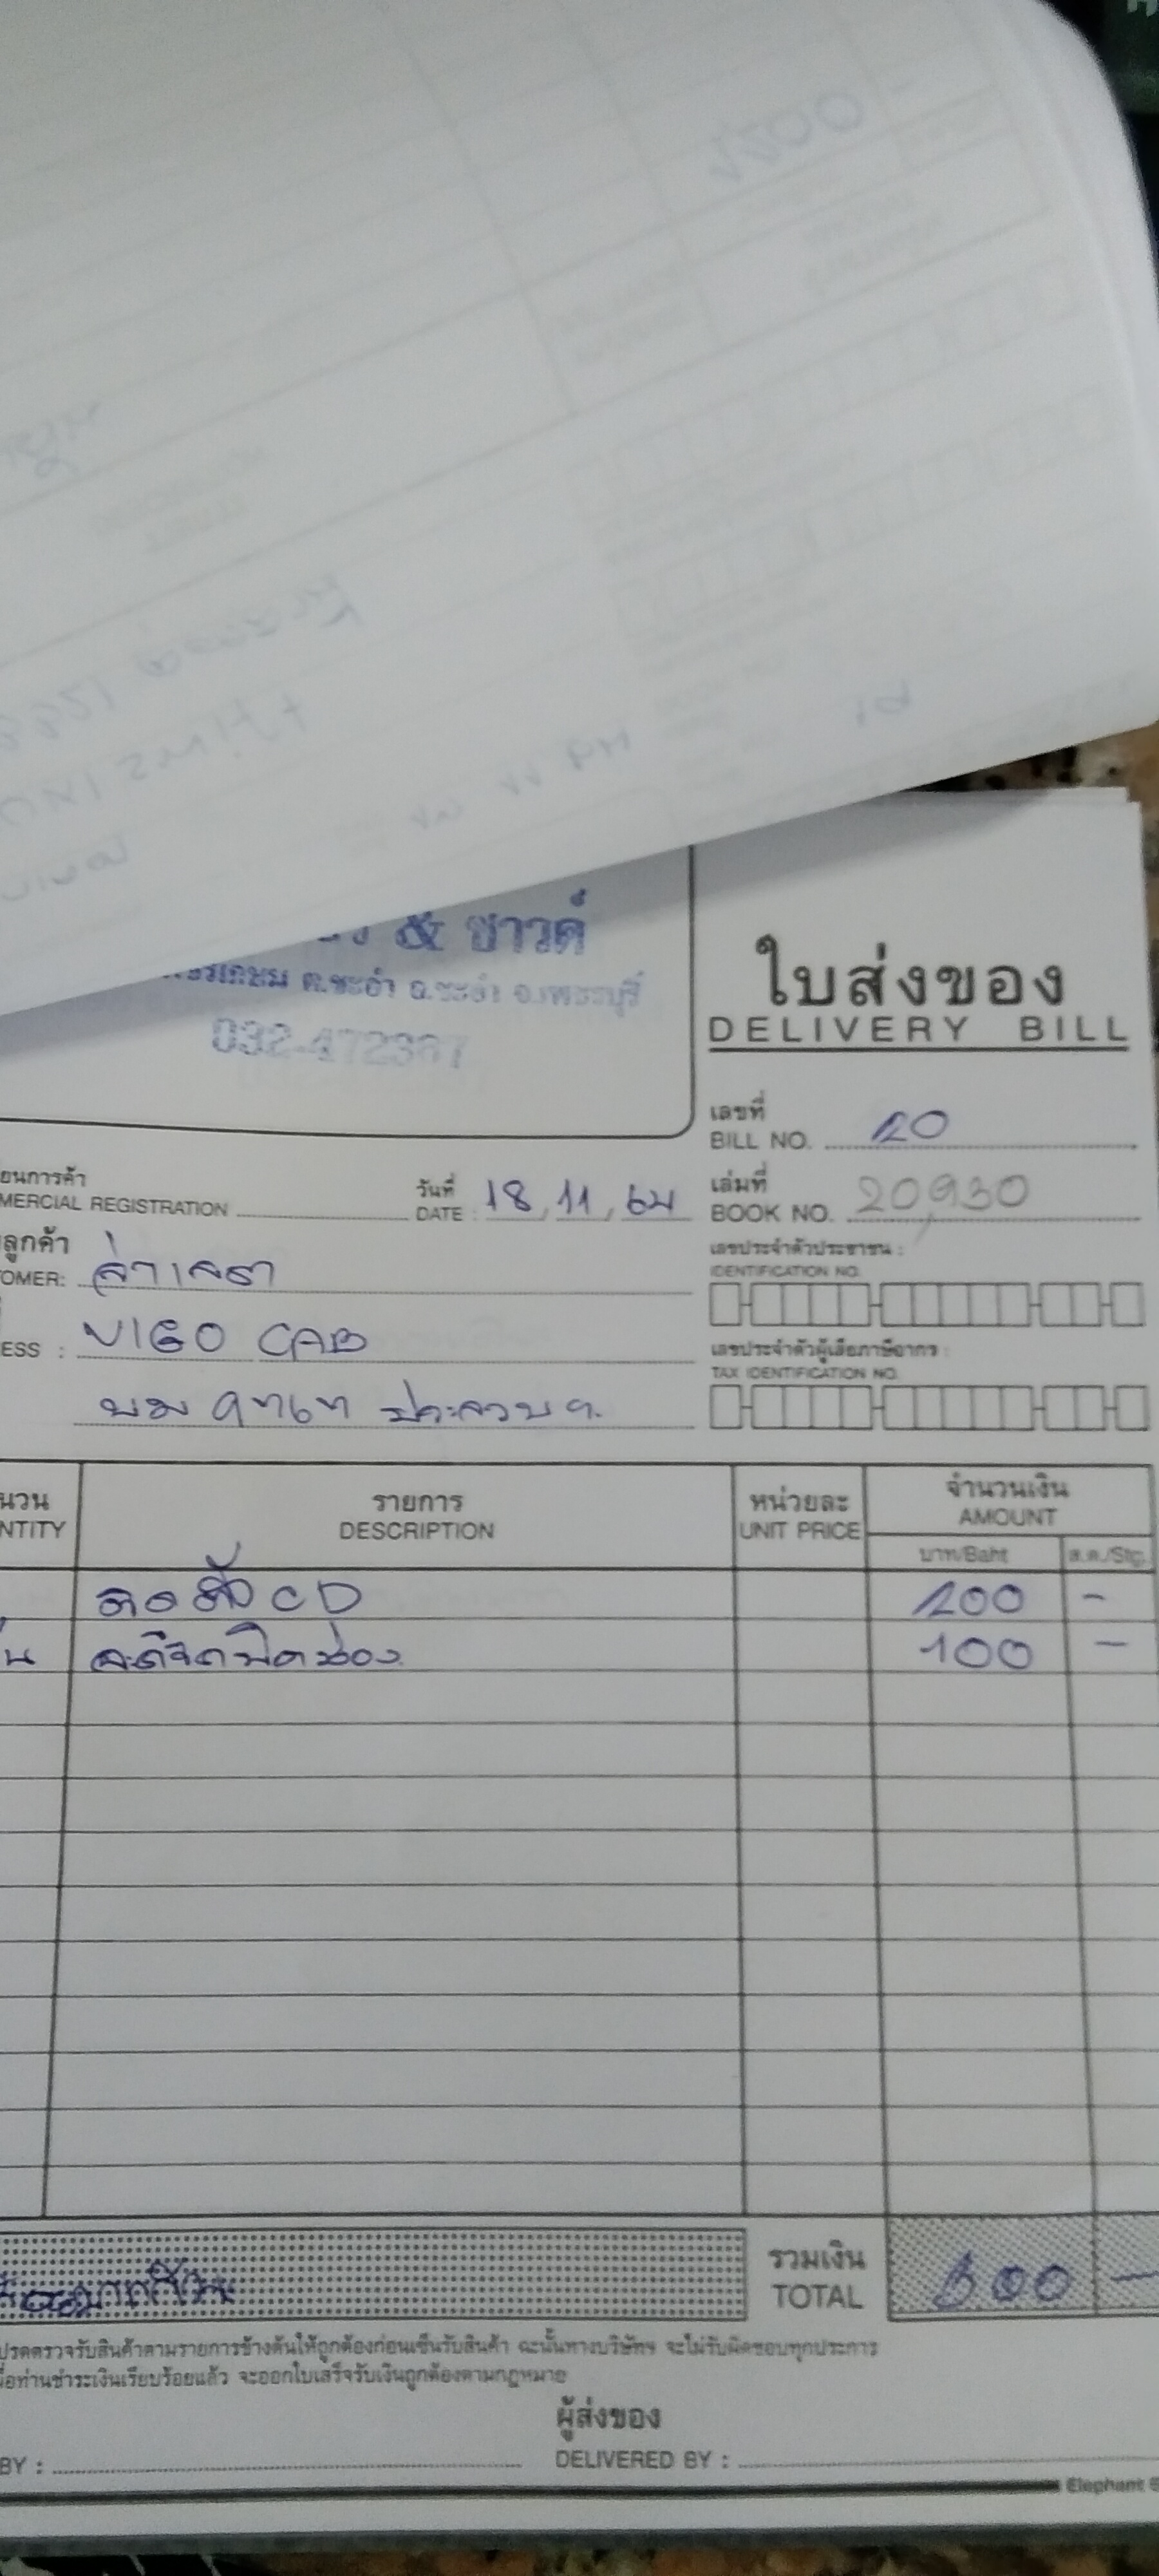 & ซาวด์
ต.ชะอำ อ.ชะอำ จ.เพชรบุรี
ใบส่งของ
DELIVERY BILL
เลขที่
BILL NO. 20
ยนการค้า
MERCIAL REGISTRATION
วันที่
DATE : 18, 11, 64
เล่มที่
BOOK NO. 20,930
ลูกค้า
OMER:
เลขประจำตัวประชาชน :
IDENTIFICATION NO.
ESS : VIGO CAB
เลขประจำตัวผู้เสียภาษีอากร :
TAX IDENTIFICATION NO.
นวน
NTITY
รายการ
DESCRIPTION
หน่วยละ
UNIT PRICE
จำนวนเงิน
AMOUNT
บาท/Baht
ส.ต./Stg.
ติดตั้ง CD 200 -
100 -
รวมเงิน
TOTAL 300 -
ปรดตรวจรับสินค้าตามรายการข้างต้นให้ถูกต้องก่อนเซ็นรับสินค้า ฉะนั้นทางบริษัทฯ จะไม่รับผิดชอบทุกประการ
มื่อท่านชำระเงินเรียบร้อยแล้ว จะออกใบเสร็จรับเงินถูกต้องตามกฎหมาย
ผู้ส่งของ
BY :
DELIVERED BY :
Elephant